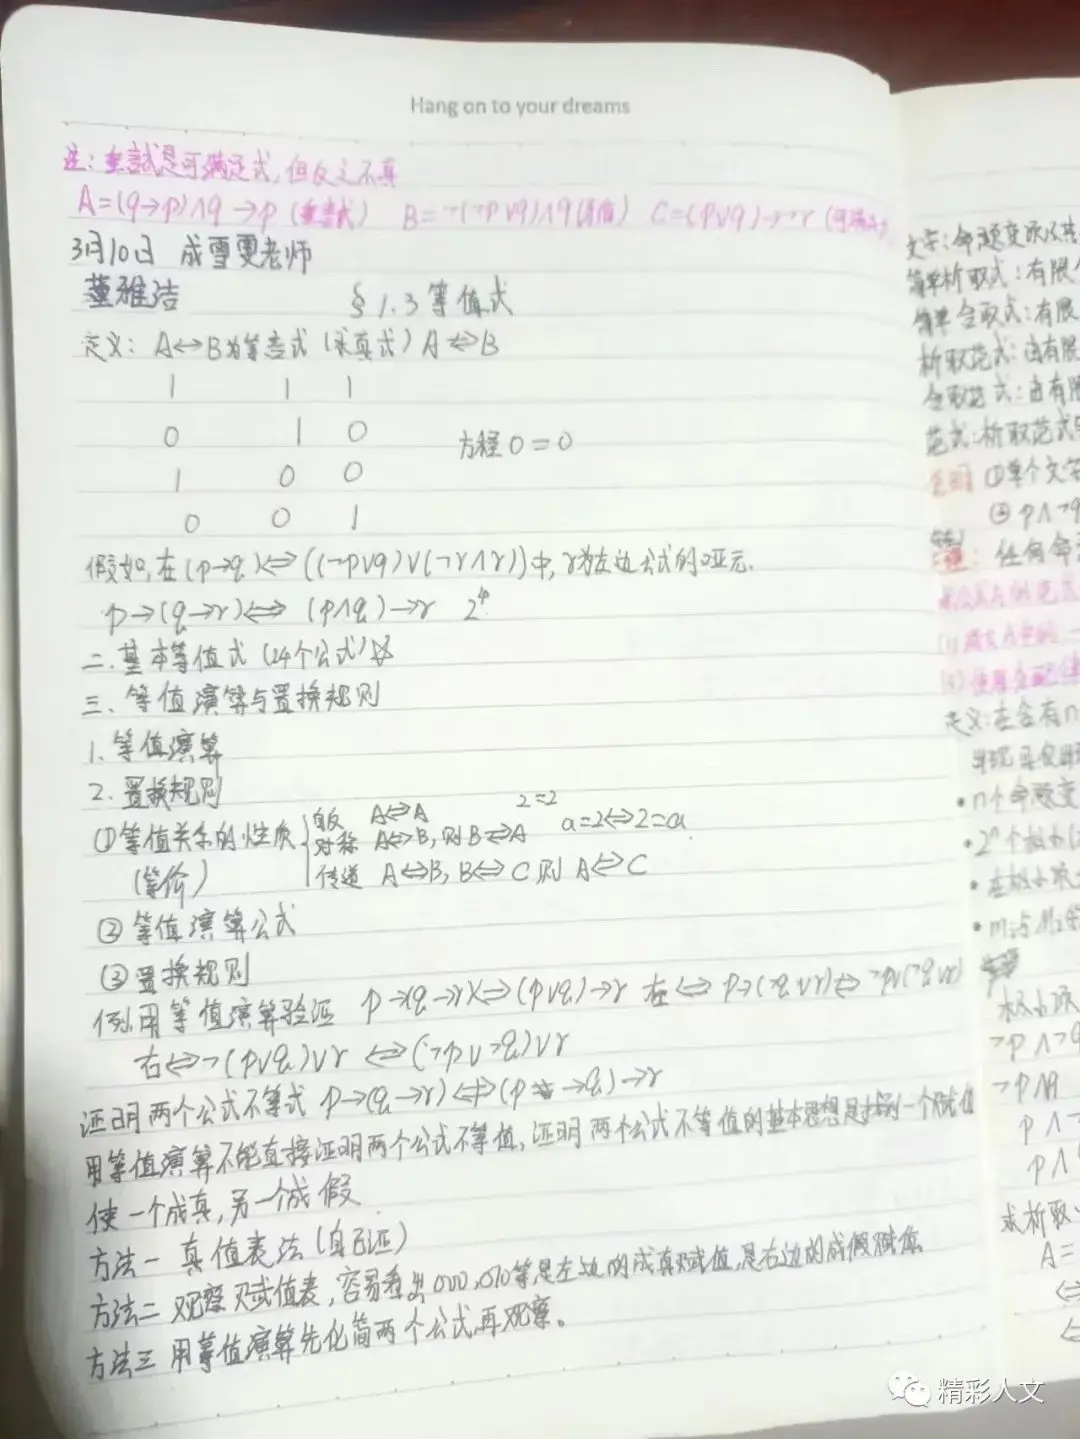 Hang on to your dreams
注：重言式是可满足式，但反之不真
A=(q→p)∧q→p (重言式) B=¬(¬p∨q)∧q(矛盾) C=(p∨q)→¬r
3月10日 成雪雯老师
董雅洁 §1.3等值式
定义：A↔B为等言式(永真式) A⇔B
1 1 1
0 1 0 方程0=0
1 0 0
0 0 1
假如，在(p→q)⇔((¬p∨q)∨(¬r∧r))中，r为左边公式的哑元.
p→(q→r)⇔(p∧q)→r
二.基本等值式(24个公式)
三.等值演算与置换规则
1.等值演算
2.置换规则
2=2
自反 A⇔A
①等值关系的性质 对称 A⇔B,则B⇔A a=2⇔2=a
(等价) 传递 A⇔B,B⇔C则A⇔C
②等值演算公式
③置换规则
例用等值演算验证 p→(q→r)⇔(p∨q)→r 左⇔p→(¬q∨r)⇔¬p∨(¬q∨r)
右⇔¬(p∨q)∨r⇔(¬p∨¬q)∨r
证明两个公式不等式 p→(q→r)⇎(p→q)→r
用等值演算不能直接证明两个公式不等值，证明两个公式不等值的基本思想是找到一个赋值
使一个成真，另一个成假.
方法一 真值表法(自己证)
方法二 观察赋值表，容易看出000,010等是左边的成真赋值，是右边的成假赋值
方法三 用等值演算先化简两个公式再观察。
文字：命题变项及其
简单析取式：有限
简单合取式：有限
析取范式：由有限
合取范式：由有限
范式：析取范式
①单个文字
②p∧¬q
任何命
定义：在含有n
•n个命题变
•2ⁿ个极小
•在极小项
¬p∧¬q
¬p∧q
p∧¬
p∧
求析取
A=
⇔
⇔
精彩人文